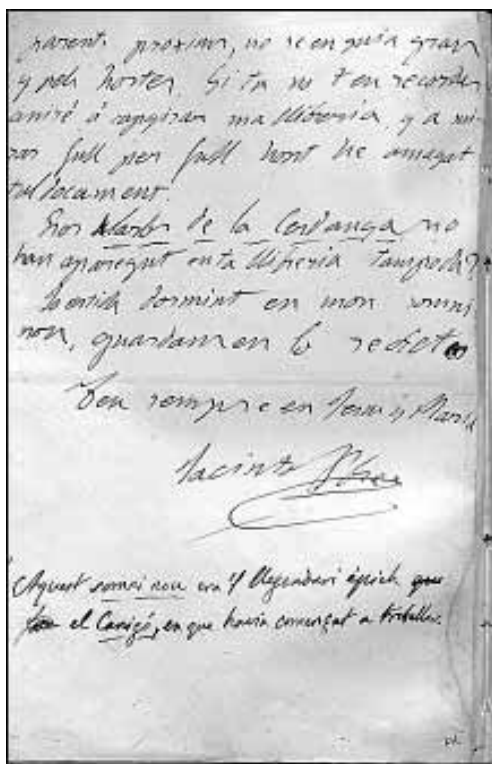 parent proxim, no se en guia gran
y pels hortes. Si tu no t'en recordes
aniré á capgirar ma llibreria, y a mi-
rar full per full hont he amagat
tal document.
Los de la Cerdanya no
han aparegut en ta llibreria tampoch?
dormint en mon somni
nou, guardam en lo secret
Teu sempre en Jesus y Maria
Jacinto
(Aquest somni nou era 'l llegendari épich que
fou el Canigó, en que havia comensat a treballar.